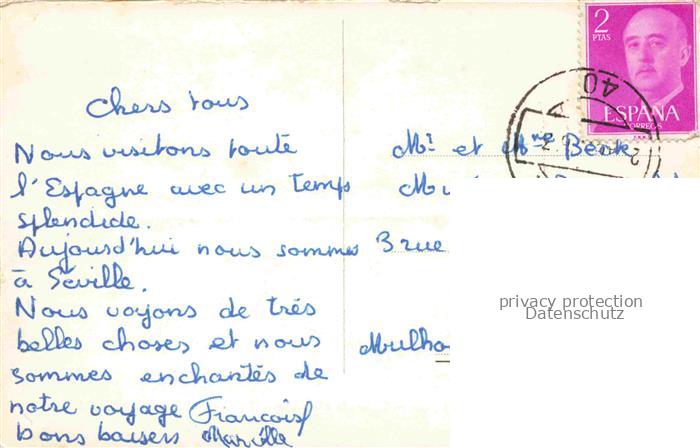 Chers tous
Nous visitons toute
l'Espagne avec un temps
splendide.
Aujourd'hui nous sommes
à Séville.
Nous voyons de très
belles choses et nous
sommes enchantés de
notre voyage François
bons baisers
2
PTAS
ESPAÑA
CORREOS
40
Mr et Mme
3 rue
Mulho
privacy protection
Datenschutz